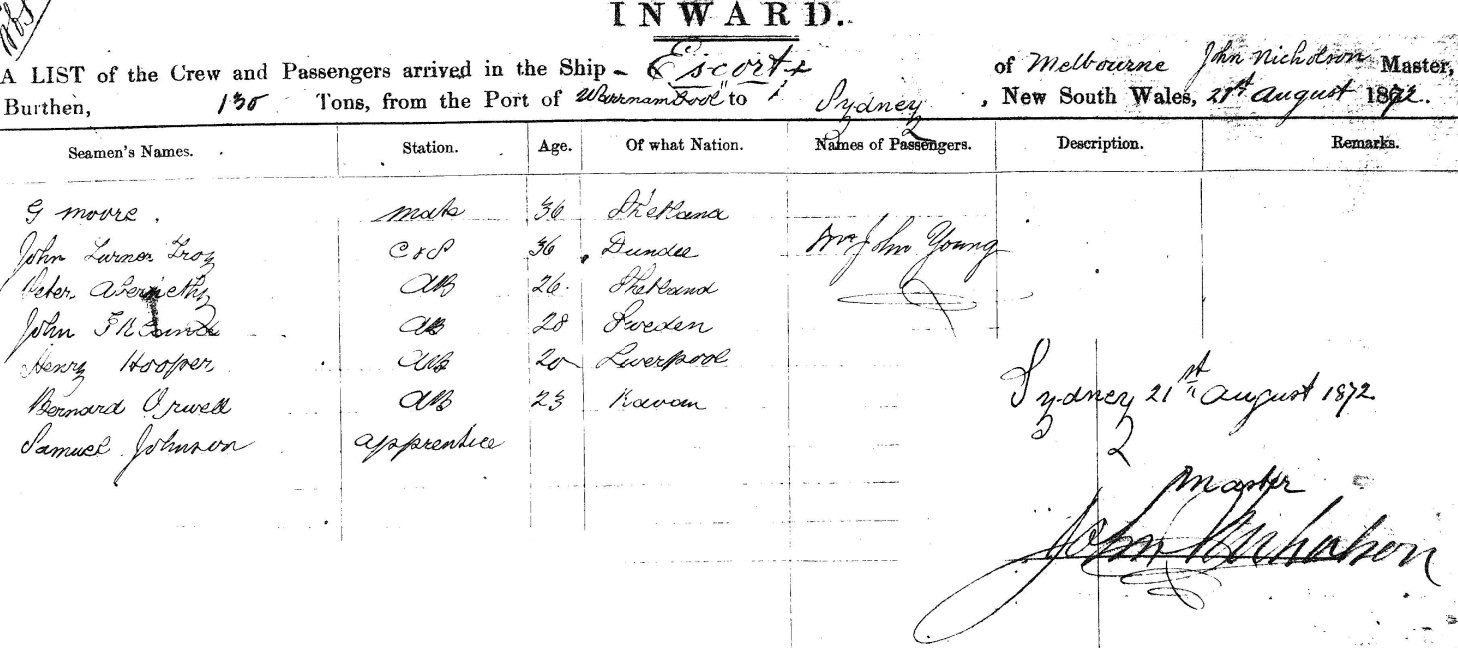 INWARD.
A LIST of the Crew and Passengers arrived in the Ship - Escort of Melbourne John Nicholson Master,
Burthen, 130 Tons, from the Port of Warrnambool to Sydney, New South Wales, 21st August 1872.
Seamen's Names. Station. Age. Of what Nation. Names of Passengers. Description. Remarks.
G Moore. Mate 36 Shetland
John Turner Troy C & S 36 Dundee Mr John Young
Peter Abernethy AB 26 Shetland
John AB 28 Sweden
Henry Hooper AB 20 Liverpool
Bernard Orwell AB 23 Kavan
Sydney 21st August 1872
Samuel Johnson apprentice
Master
John Nicholson